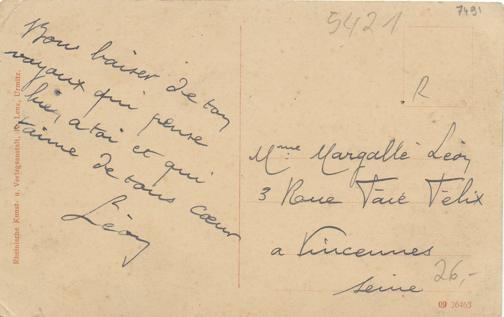 Bons baiser de ton
voyoux qui pense
bien a toi et qui
t'aime de tous cœur
Léon
Mme Margallé Léon
3 Rue Faie Félix
a Vincennes
Seine
5421
7491
R
26,-
09 36463
Rheinische Kunst- u. Verlagsanstalt, Lenz, Urmitz.